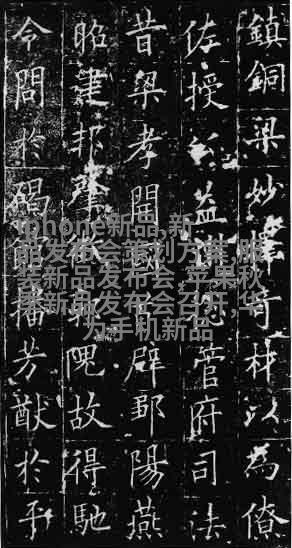 鎮銅梁妙擇奇材以為僚
佐授公益州總管府司法
昔梁孝開國首辟鄒陽燕
昭建邦肇徵郭隗故得馳
令問於碣館播芳猷於平
iphone新品,新
品发布会策划方案,服
装新品发布会,苹果秋
季新品发布会召开,华
为手机新品